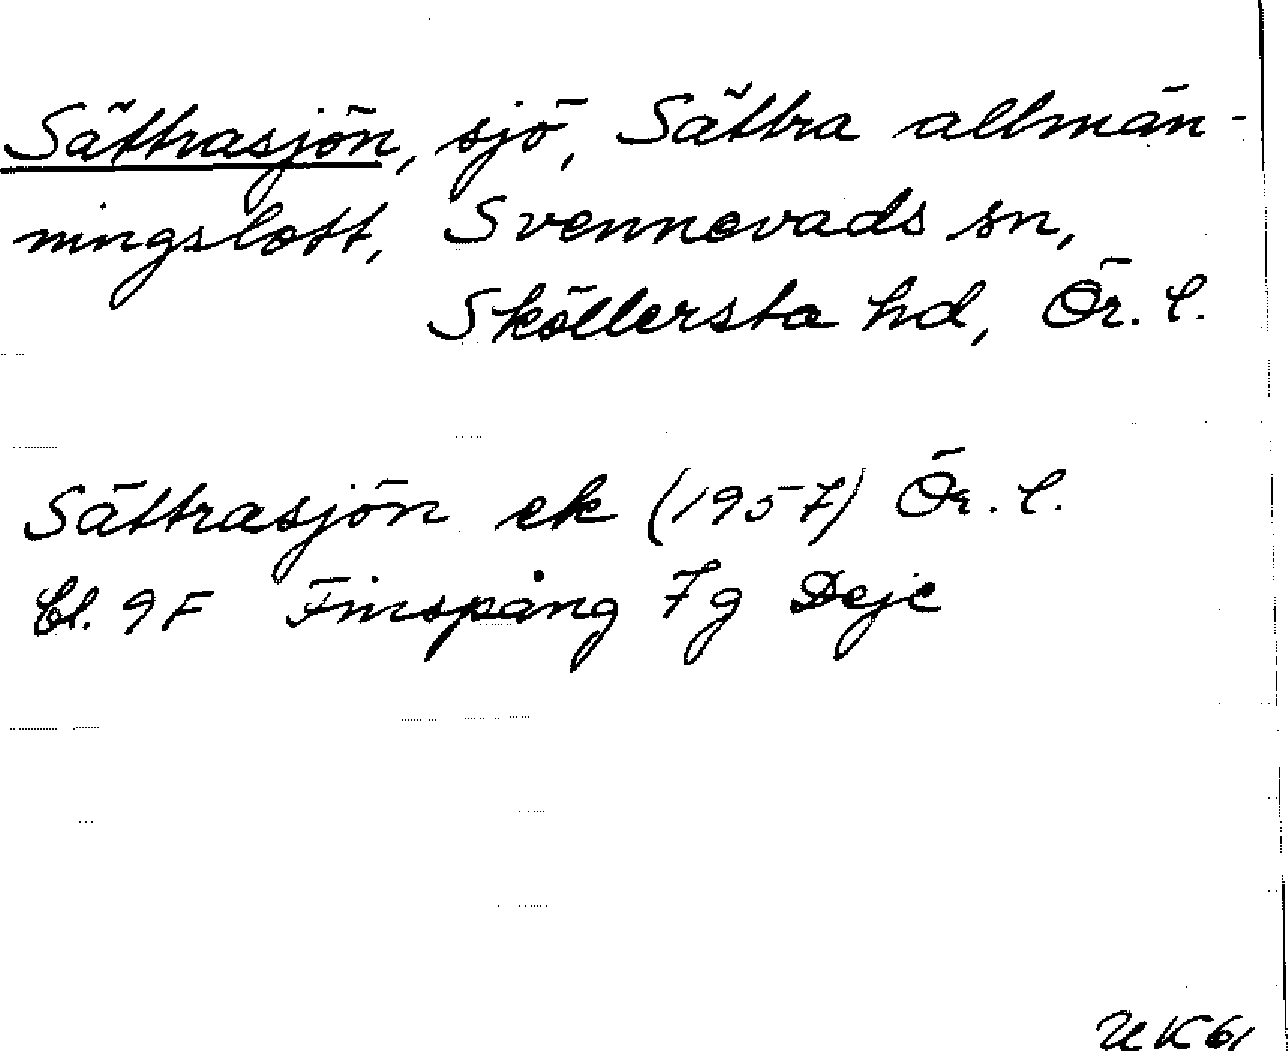 Sättrasjön, sjö, Sättra allmän-
ningslott, Svennevads sn,
Sköllersta hd, Ör. l.
Sättrasjön ek (1957) Ör. l.
bl. 9F Finspång 7g Deje
UK61